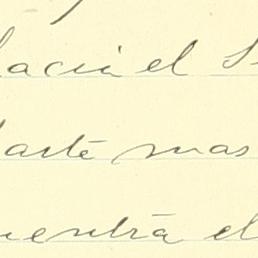 hacia el S
arte mas
uentra el